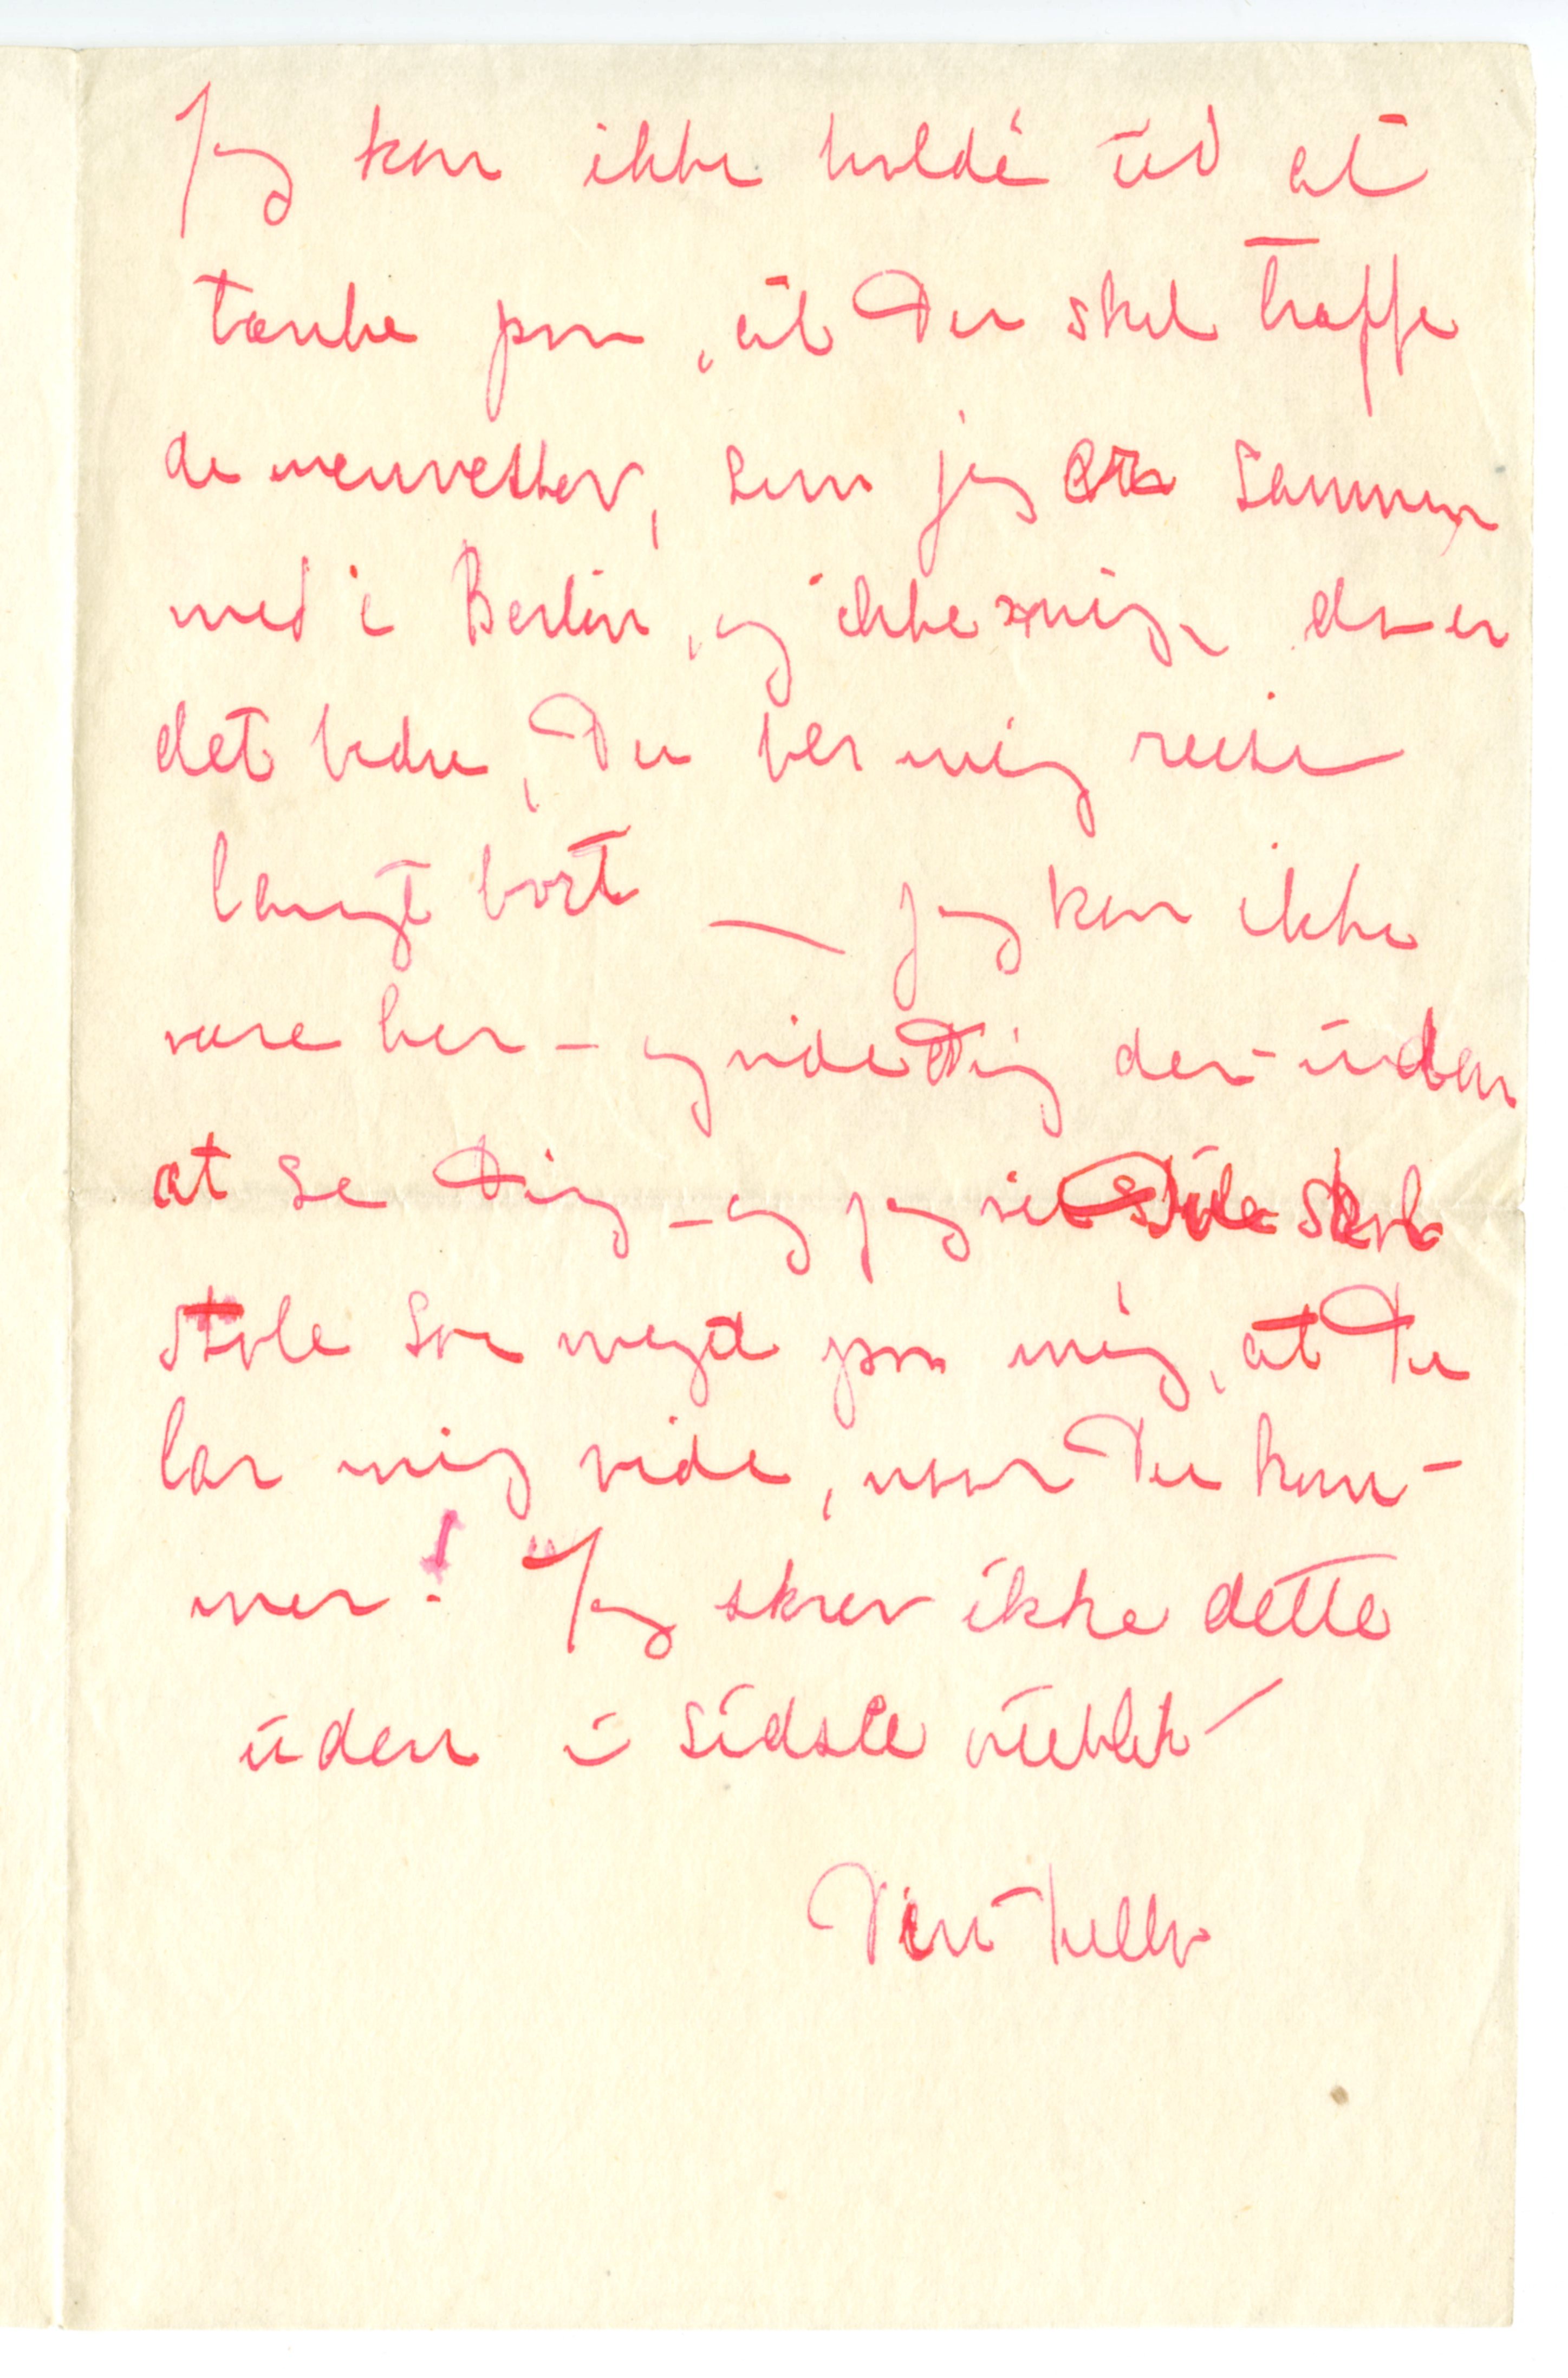 Jeg kan ikke holde ud at
tænke paa, at Du skal træffe
de mennesker, som jeg er sammen
med i Berlin, og ikke mig, da er
det bedre, Du ber mig reise
langt bort — jeg kan ikke
være her – og vide Dig der – uden
at se Dig – og jeg vil Du skal
stole saa meget paa mig, at Du
lar mig vide, naar Du kom-
mer! Jeg skrev ikke dette
uden i sidste
Din